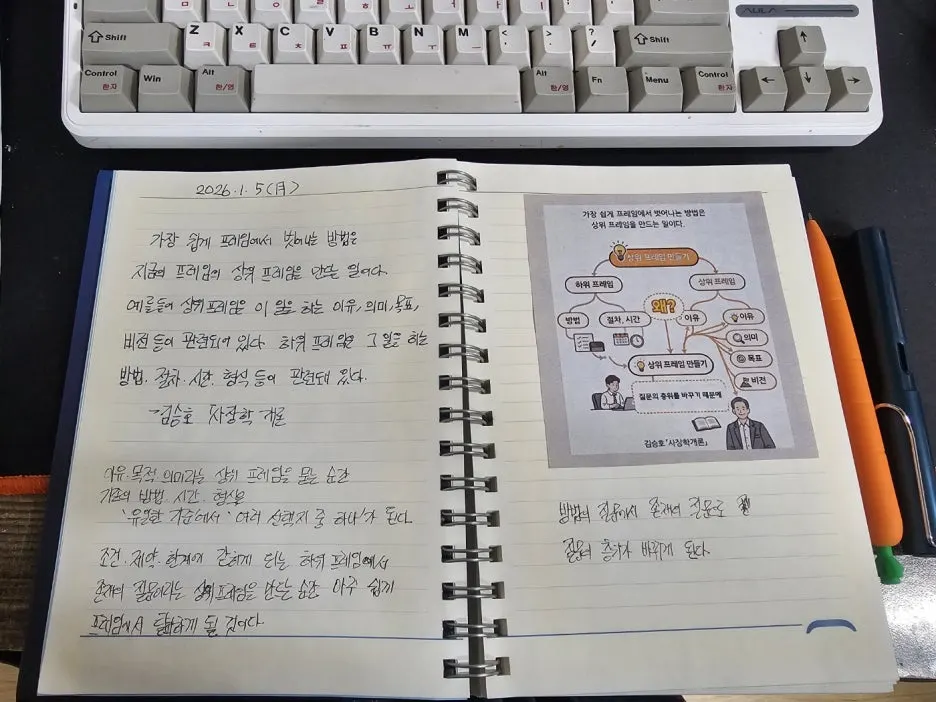 Shift
Z ㅋ
X ㅌ
C ㅊ
V ㅍ
B ㅠ
N ㅜ
M ㅡ
< ,
> .
? /
Shift
↑
Control 한자
Win
Alt 한/영
Alt 한/영
Fn
Menu
Control 한자
←
↓
→
AULA
2026.1.5(月)
가장 쉽게 프레임에서 벗어나는 방법은
지금의 프레임의 상위 프레임을 만드는 일이다.
예를들어 상위 프레임은 이 일을 하는 이유, 의미, 목표,
비전 등이 관련되어 있다. 하위 프레임은 그 일을 하는
방법. 절차. 시간. 형식 등이 관련돼 있다.
-김승호 사장학 개론
이유. 목적. 의미라는 상위 프레임을 묻는 순간
기존의 방법. 시간. 형식은
'유일한 기준에서' '여러 선택지 중 하나'가 된다.
조건. 제약. 한계에 갇히게 되는 하위 프레임에서
존재의 질문이라는 상위 프레임을 만드는 순간 아주 쉽게
프레임에서 탈출하게 될 것이다.
가장 쉽게 프레임에서 벗어나는 방법은
상위 프레임을 만드는 일이다.
상위 프레임 만들기
하위 프레임
상위 프레임
왜?
방법
절차, 시간
이유
이유
의미
목표
비전
상위 프레임 만들기
질문의 층위를 바꾸기 때문에
김승호「사장학개론」
방법의 질문에서 존재의 질문으로
질문의 층위가 바뀌게 된다.